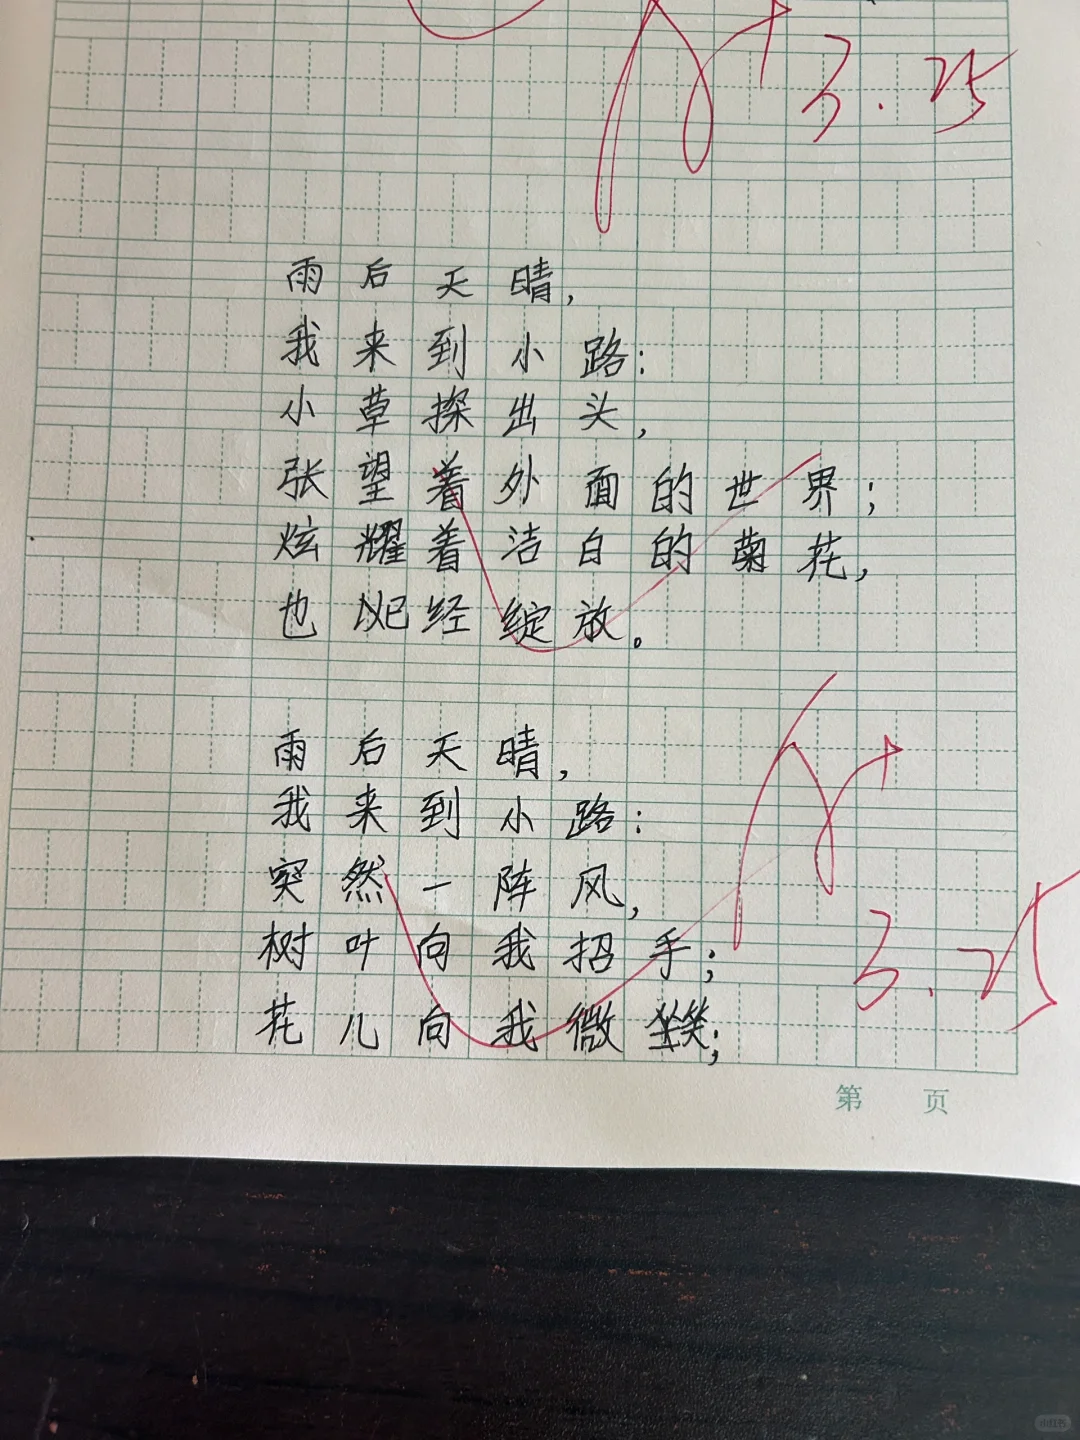 3.25
雨后天晴，
我来到小路：
小草探出头，
张望着外面的世界；
炫耀着洁白的菊花，
也已经绽放。
雨后天晴，
我来到小路：
突然一阵风，
树叶向我招手；
花儿向我微笑；
3.25
第 页
小红书